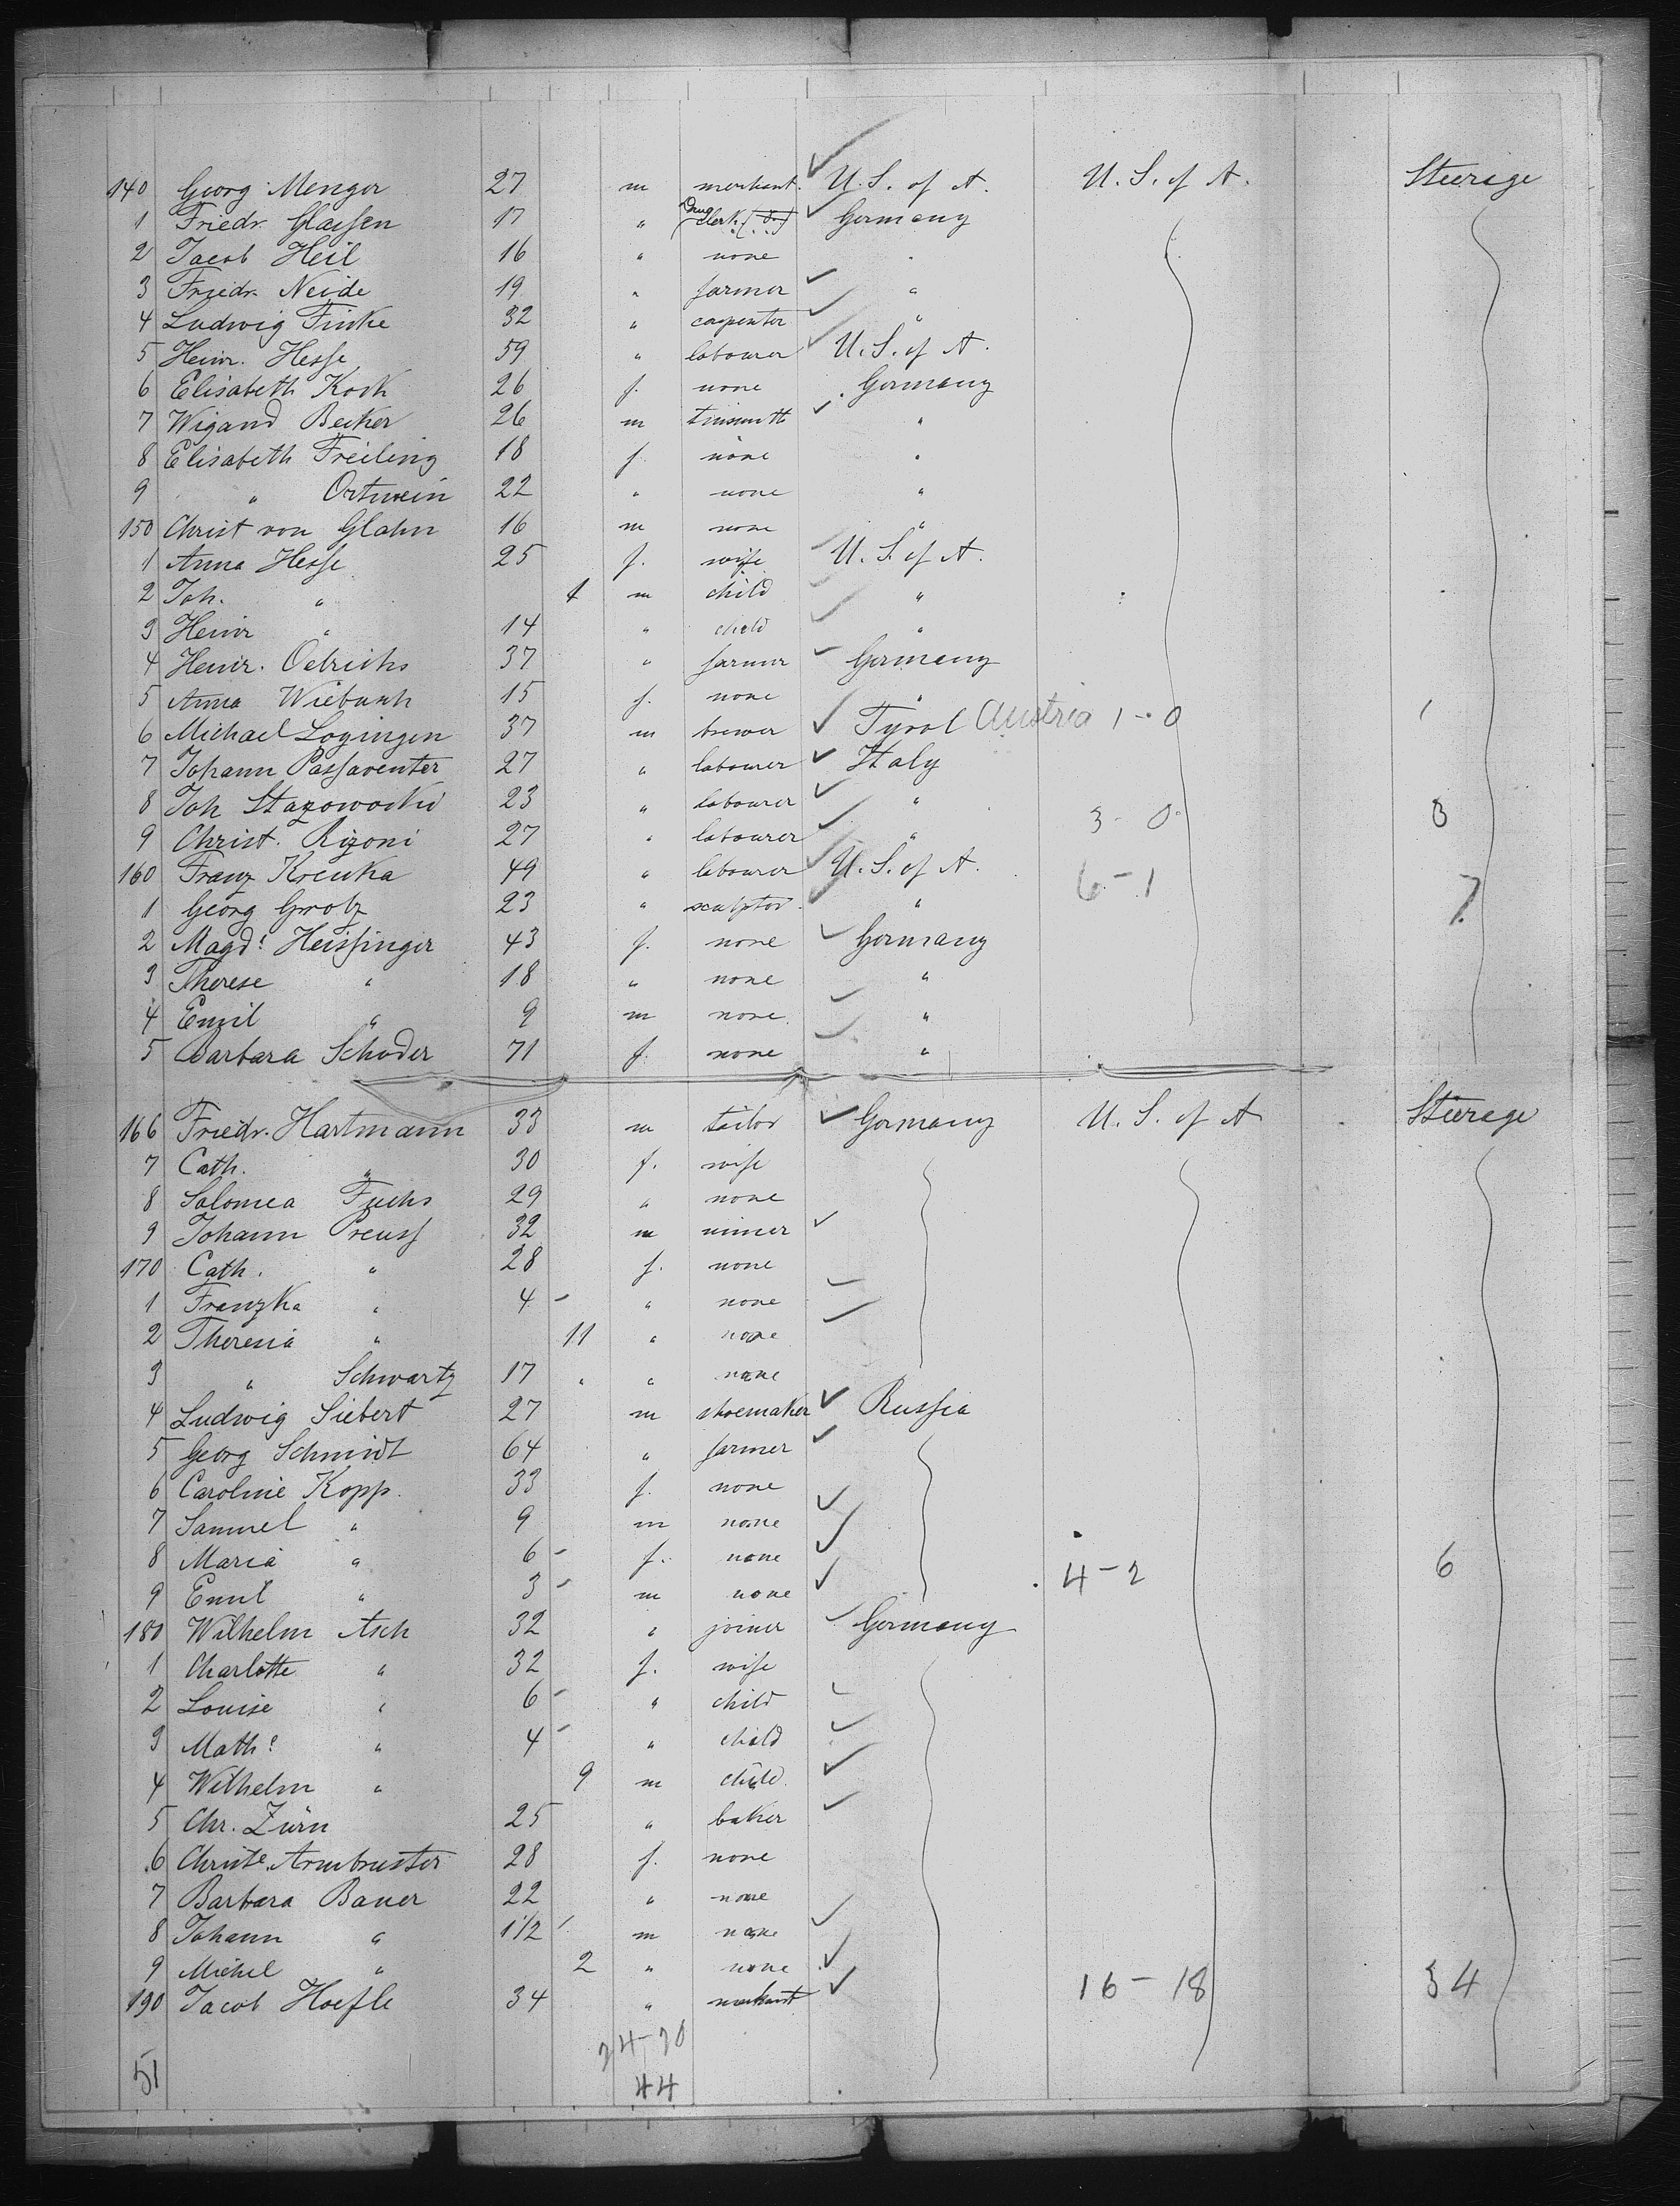 140 Georg Menger 27 m merchant U.S. of A. U.S. of A. Steerage
1 Friedr. Glassen 17 " Drug clerk Germany
2 Jacob Heil 16 " none "
3 Friedr. Neide 19 " farmer "
4 Ludwig Finke 32 " carpenter "
5 Heinr. Hesse 59 " labourer U.S. of A.
6 Elisabeth Koch 26 f. none Germany
7 Wigand Becker 26 m tinsmith "
8 Elisabeth Freiling 18 f. none "
9 " Ortwein 22 " none "
150 Christ von Glahn 16 m none "
1 Anna Hesse 25 f. wife U.S. of A.
2 Joh. " 1 m child "
3 Heinr " 14 " child "
4 Heinr. Oelrichs 37 " farmer Germany
5 Anna Wiebush 15 f. none "
6 Michael Logingen 37 m brewer Tyrol Austria 1-0 1
7 Johann Passaventer 27 " labourer Italy
8 Joh Stazowoski 23 " labourer " 3-0 3
9 Christ. Rizoni 27 " labourer "
160 Franz Krenka 49 " labourer U.S. of A. 6-1 7
1 Georg Grotz 23 " sculptor "
2 Magd. Heissinger 43 f. none Germany
3 Therese " 18 " none "
4 Emil " 9 m none "
5 Barbara Schoder 71 f. none "
166 Friedr. Hartmann 33 m tailor Germany U.S. of A Steerage
7 Cath. " 30 f. wife
8 Salomea Fuchs 29 " none
9 Johann Preuss 32 m miner
170 Cath. " 28 f. none
1 Franzka " 4 - " none
2 Theresia " 11 " none
3 " Schwartz 17 " " none
4 Ludwig Siebert 27 m shoemaker Russia
5 Georg Schmidt 64 " farmer
6 Caroline Kopp. 33 f. none
7 Samuel " 9 m none
8 Maria " 6 - f. none 4-2 6
9 Emil " 3 - m none
180 Wilhelm Asch 32 " joiner Germany
1 Charlotte " 32 f. wife
2 Louise " 6 - " child
3 Math. " 4 - " child
4 Wilhelm " 9 m child
5 Chr. Zürn 25 " baker
6 Christe. Armbruster 28 f. none
7 Barbara Bauer 22 " none
8 Johann " 1 1/2 m none
9 Michel " 2 " none
190 Jacob Hoefle 34 " merchant 16-18 34
24-20
51 44